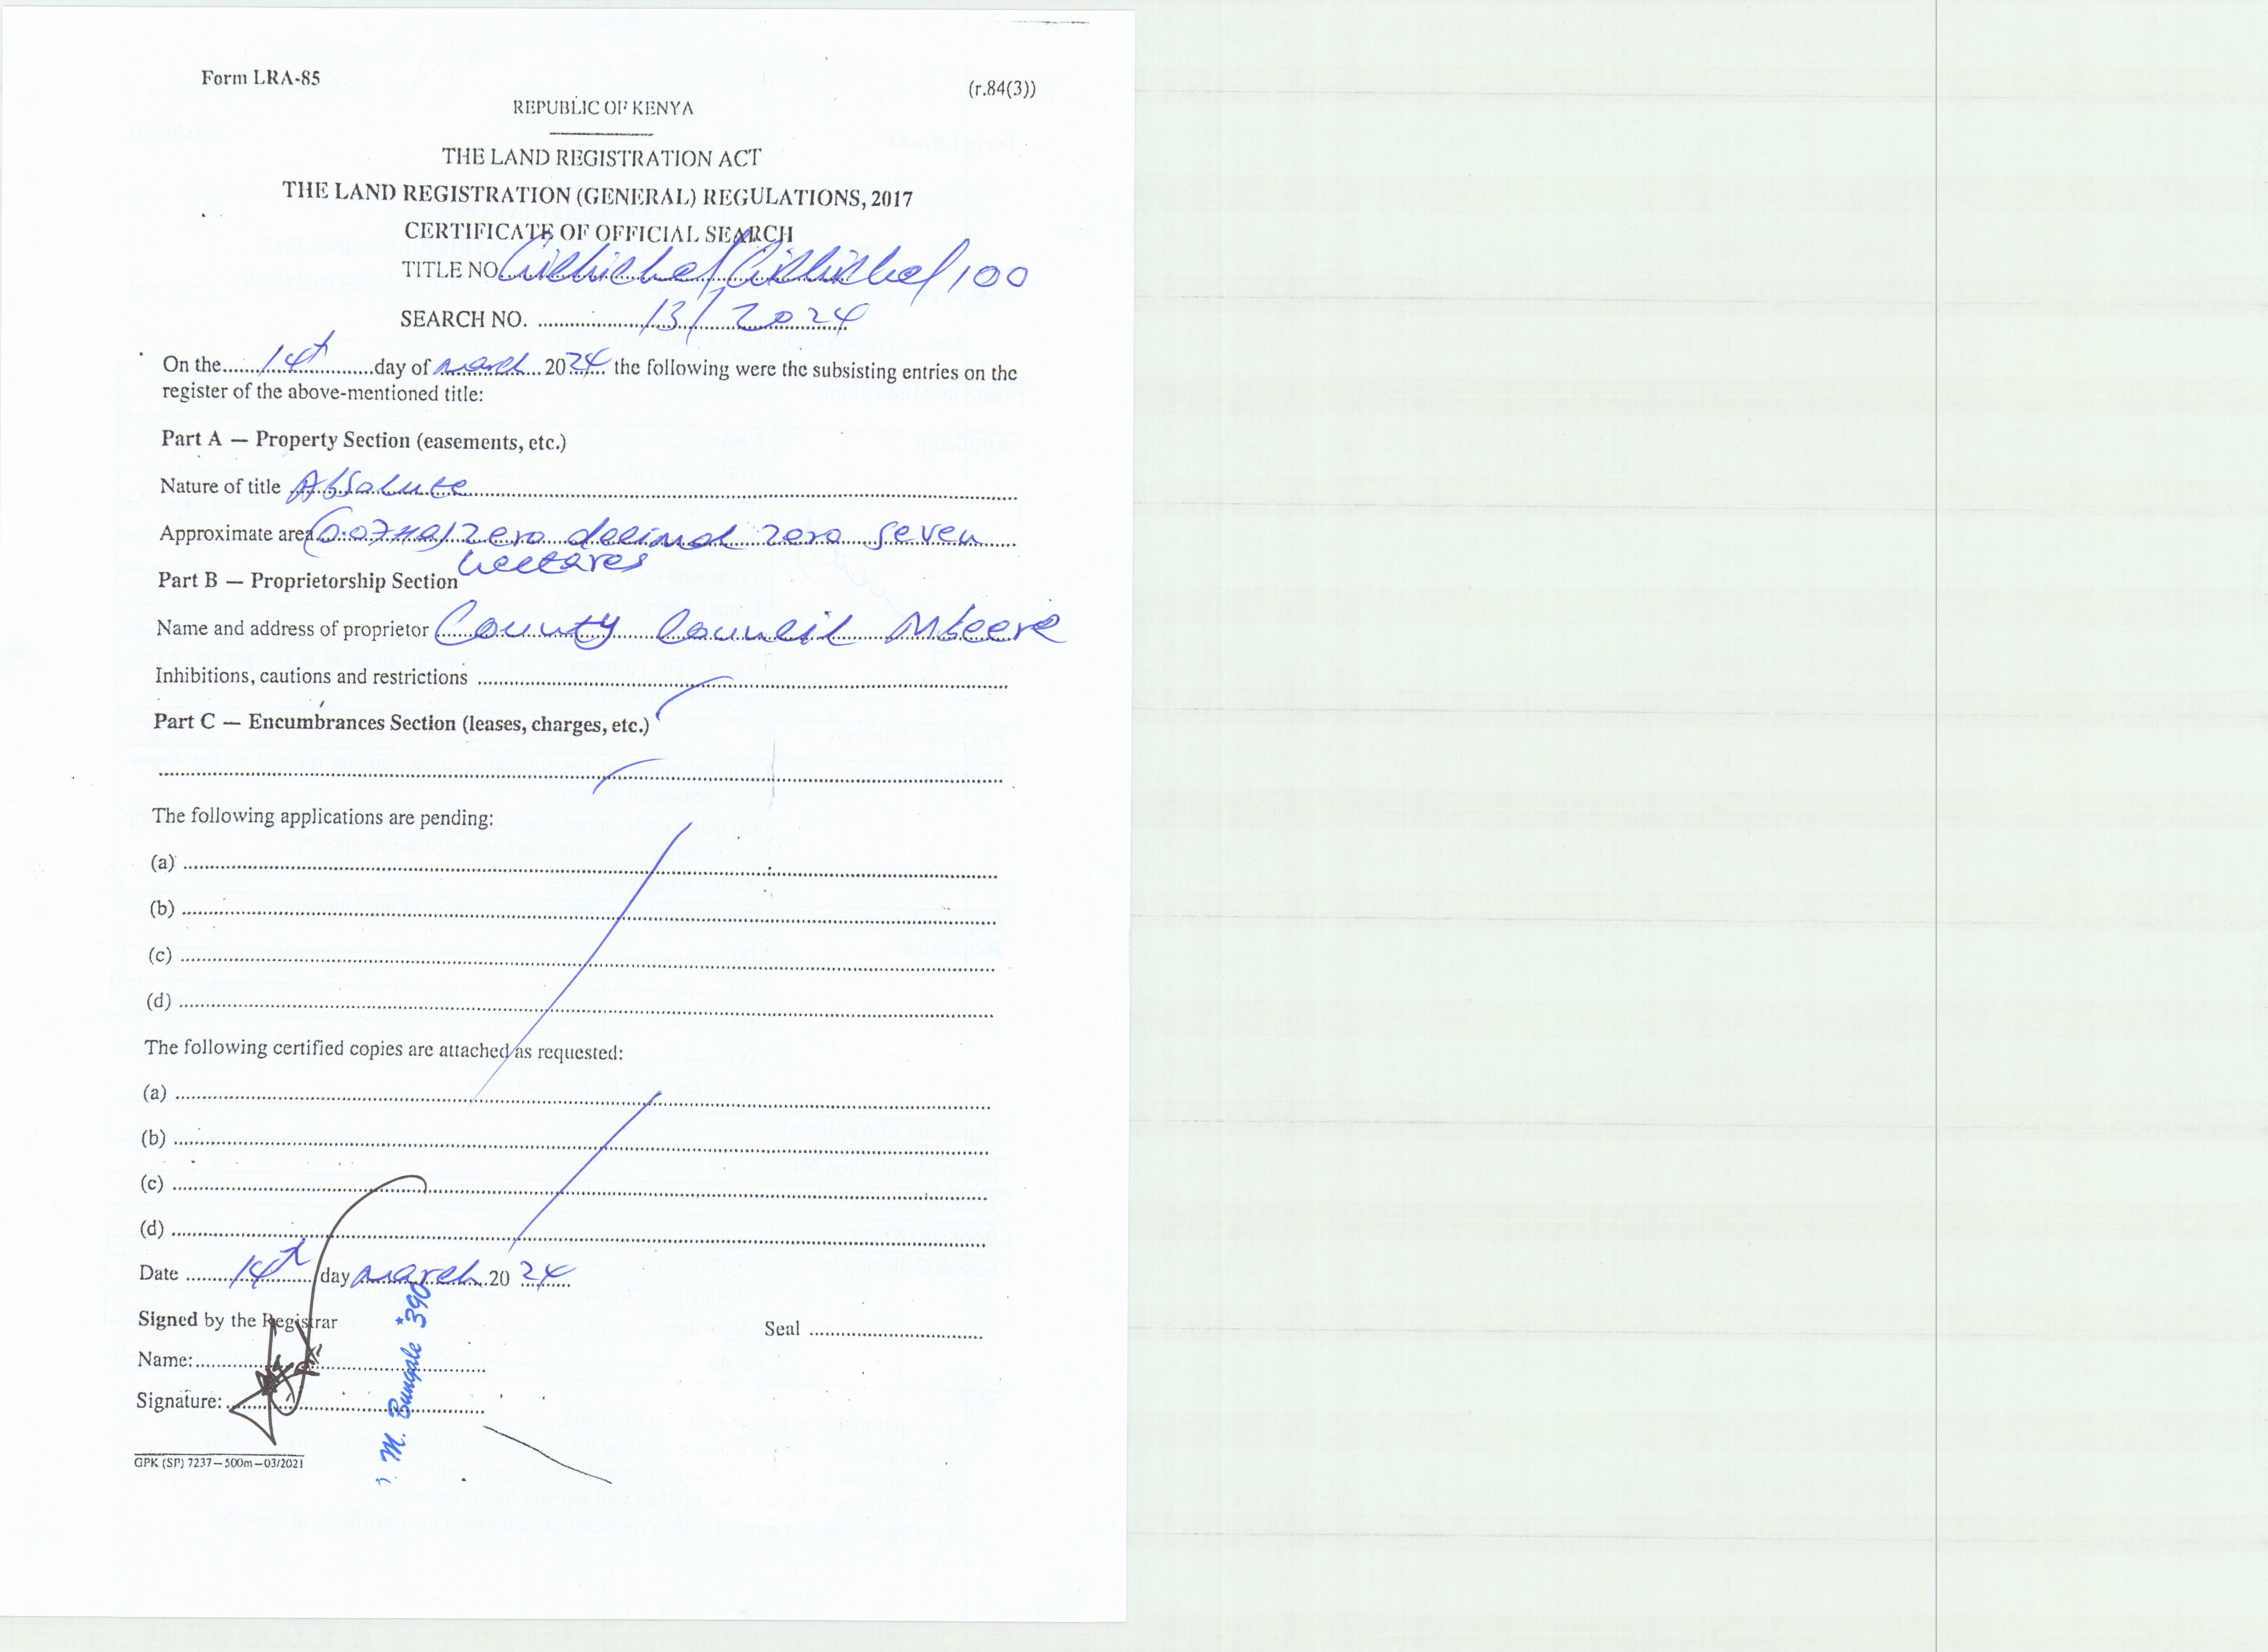 Form LRA-85
(r.84(3))
REPUBLIC OF KENYA
THE LAND REGISTRATION ACT
THE LAND REGISTRATION (GENERAL) REGULATIONS, 2017
CERTIFICATE OF OFFICIAL SEARCH
TITLE NO. /100
SEARCH NO. 13/2024
On the 14th day of march 2024 the following were the subsisting entries on the
register of the above-mentioned title:
Part A — Property Section (easements, etc.)
Nature of title Absolute
Approximate area (0.07Ha) zero decimal zero seven
hectares
Part B — Proprietorship Section
Name and address of proprietor County Council Mbeere
Inhibitions, cautions and restrictions
Part C — Encumbrances Section (leases, charges, etc.)
The following applications are pending:
(a)
(b)
(c)
(d)
The following certified copies are attached as requested:
(a)
(b)
(c)
(d)
Date 14th day march 20 24
Signed by the Registrar
Seal
Name:
Signature:
M. Bungale *390
GPK (SP) 7237—500m—03/2021